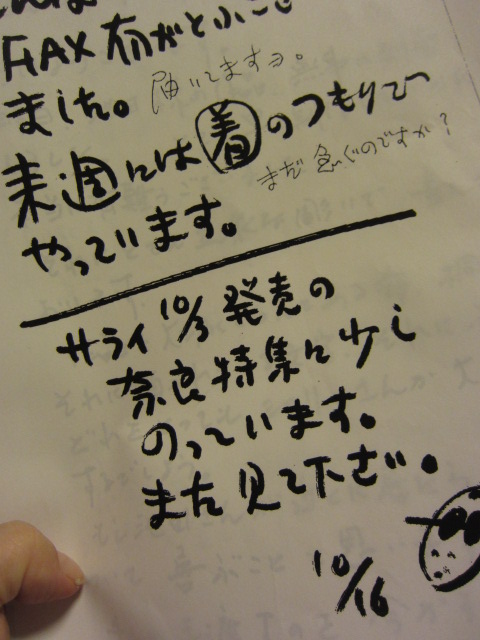 FAX 有がとうござ
ました。届いてますヨ。
来週には着のつもりで
まだ急ぐのですか？
やっています。
サライ 10/3 発売の
奈良特集に少し
のっています。
また見て下さい。
10/16